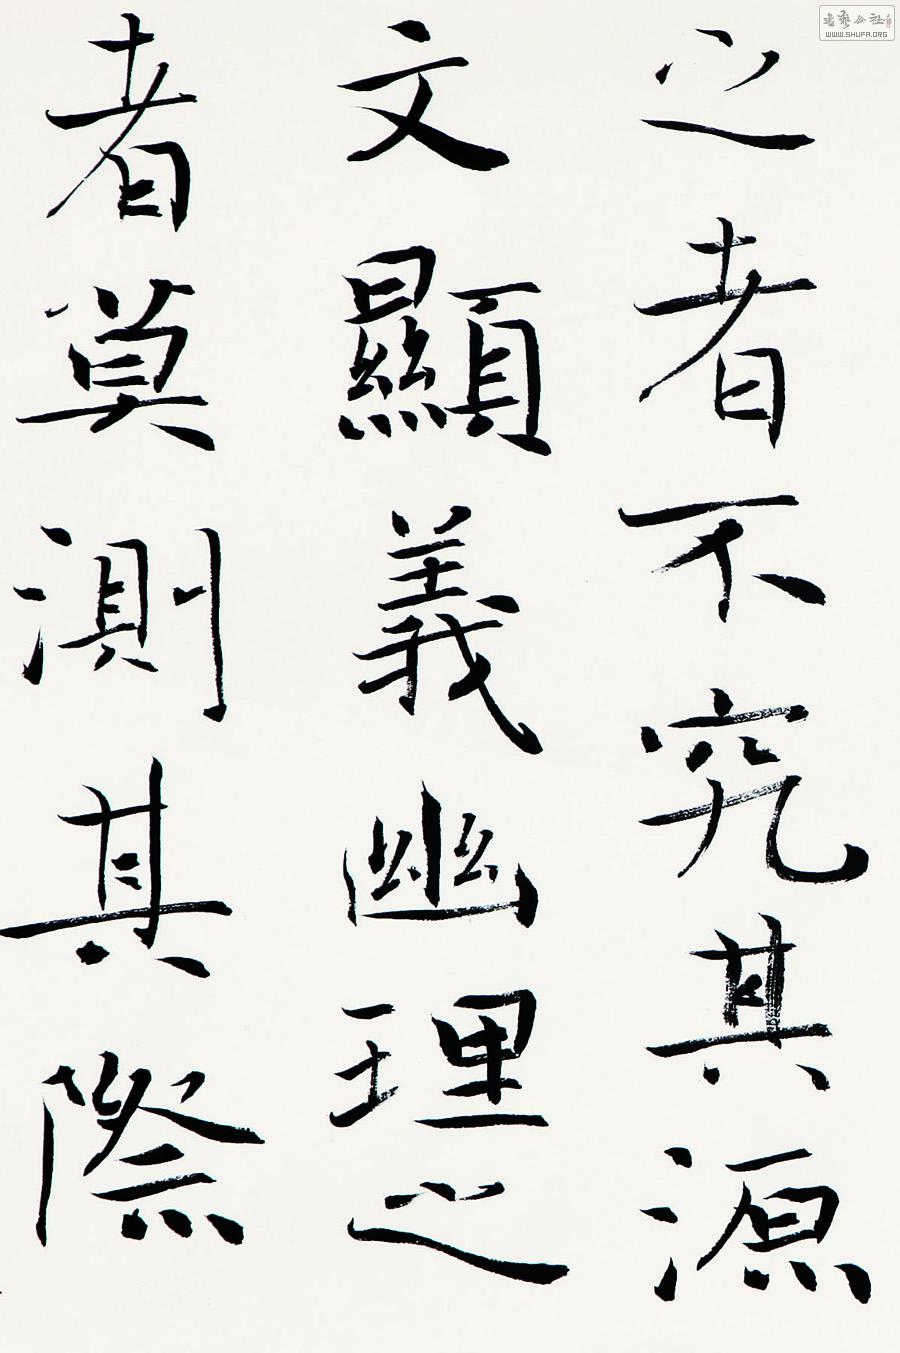 之者不究其源
文顯義幽理之
者莫測其際
WWW.SHUFA.ORG